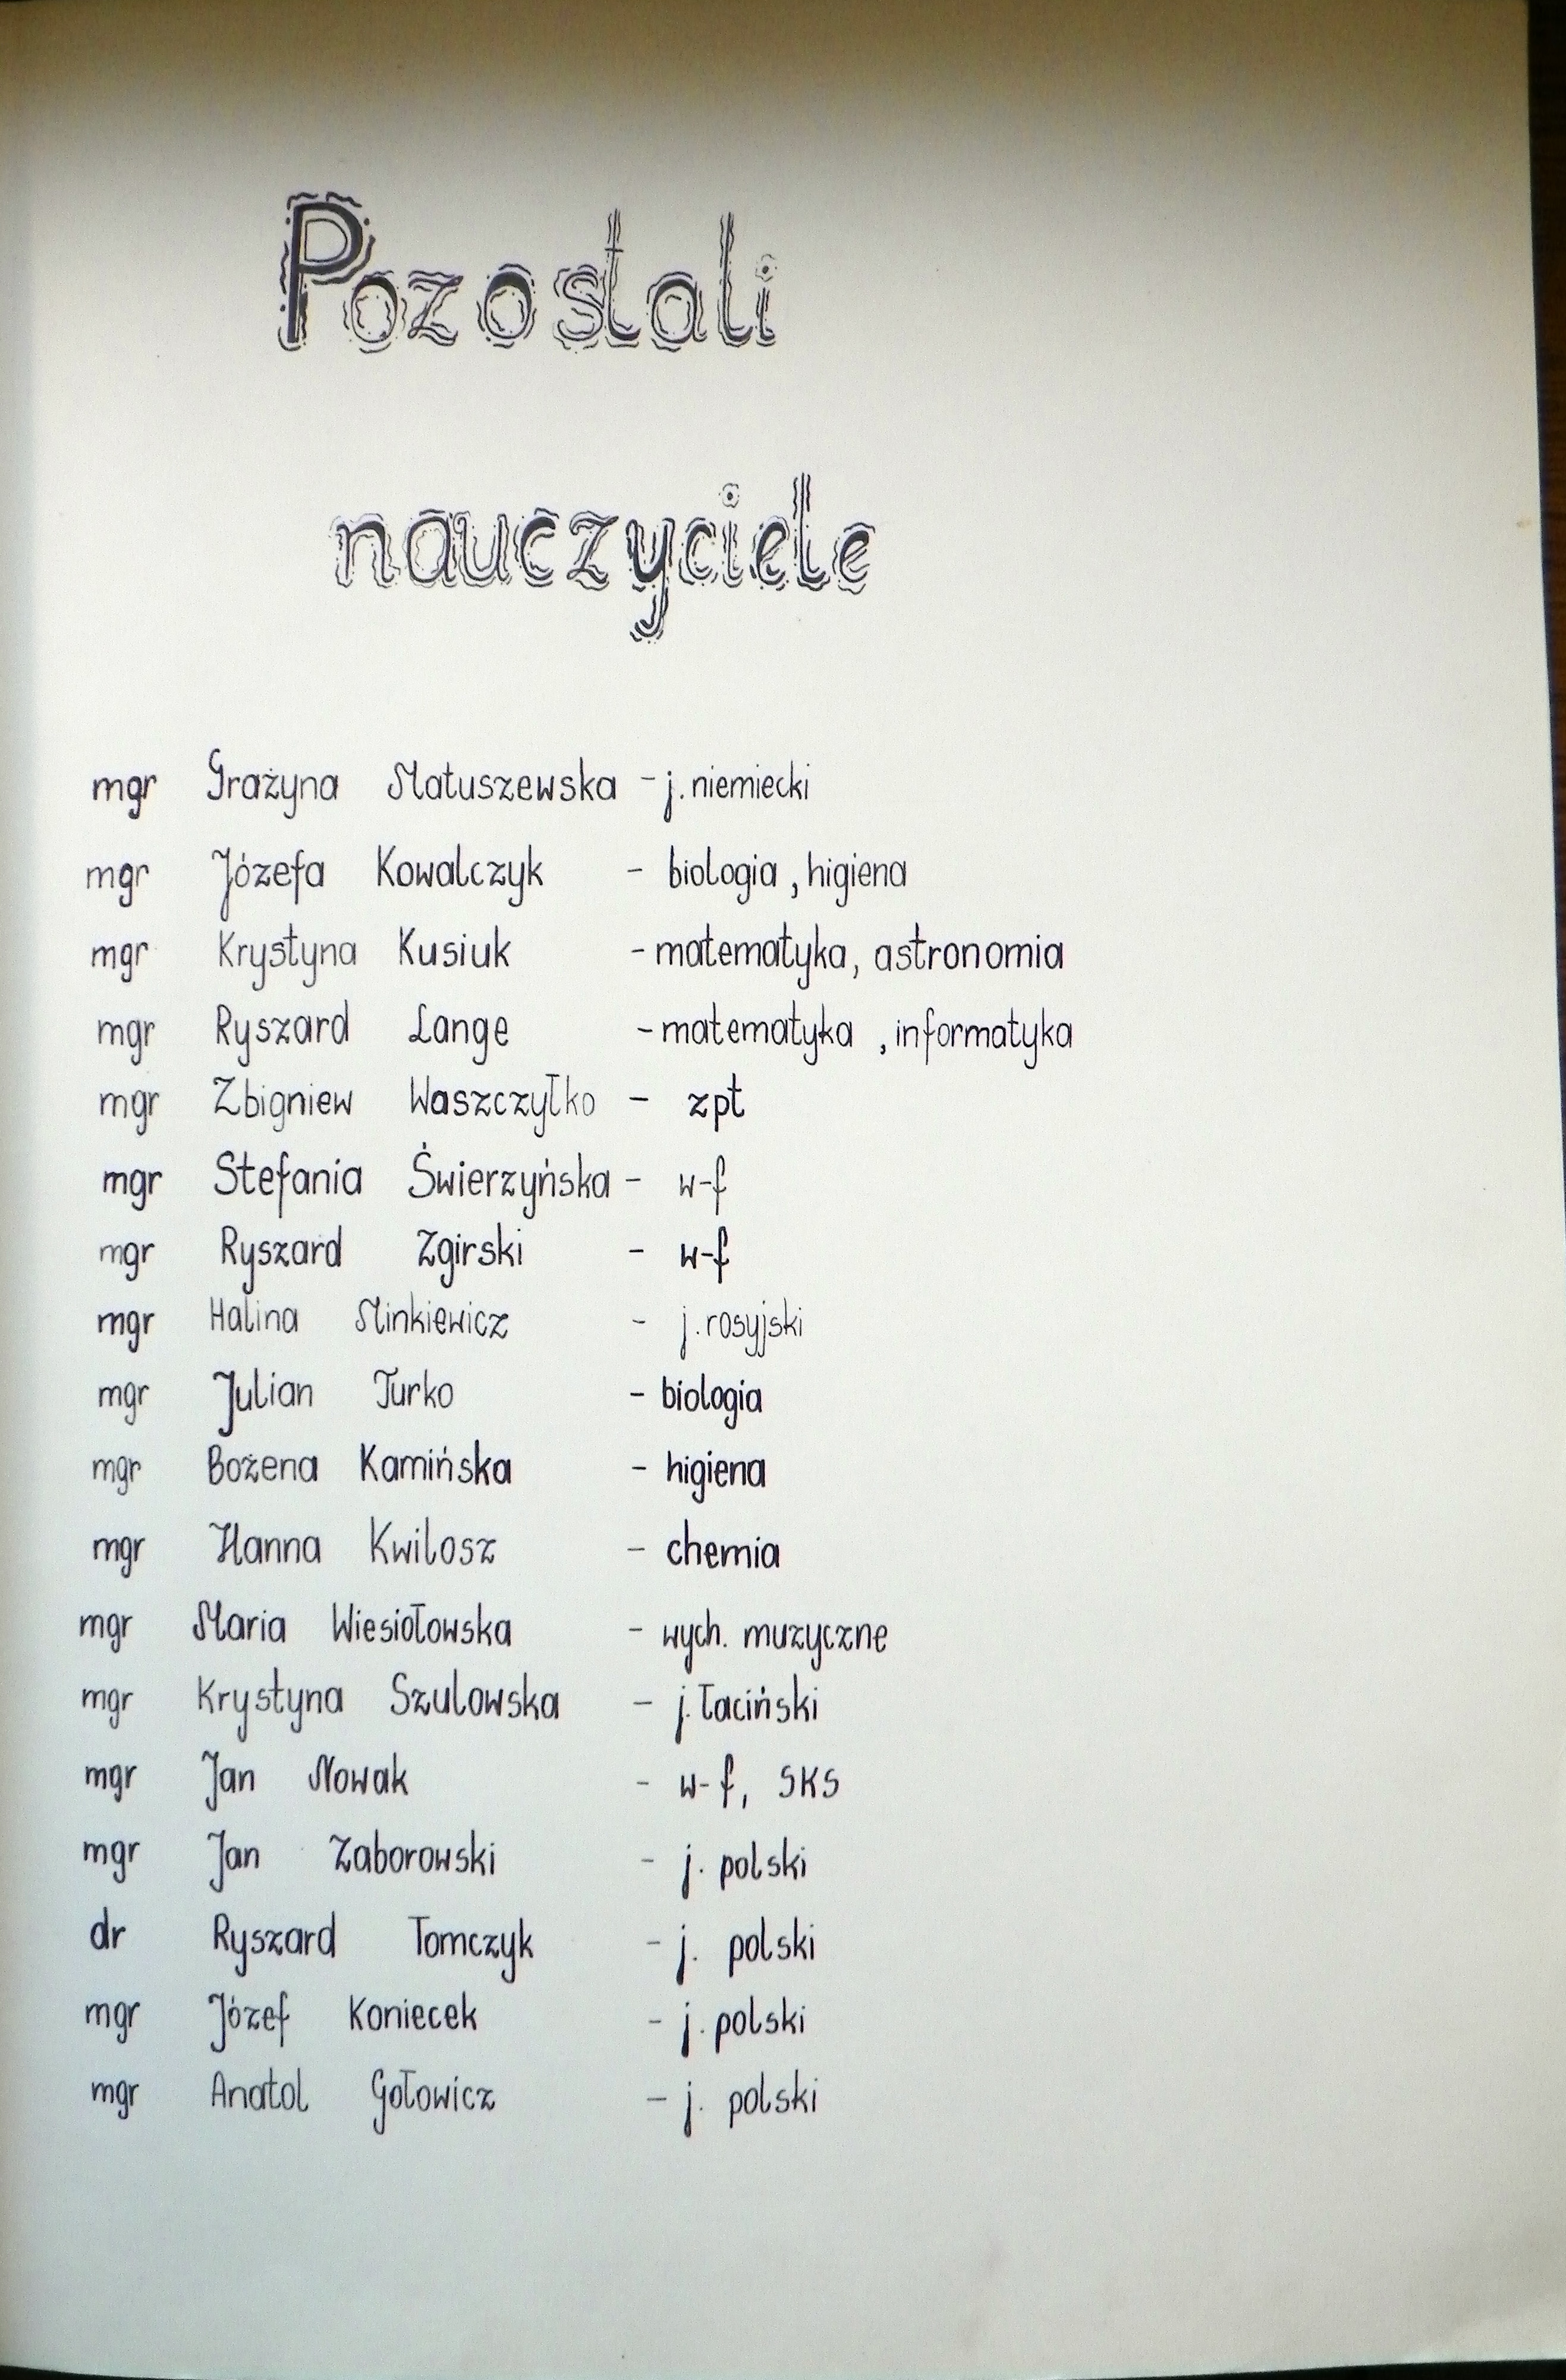 Pozostali
nauczyciele
mgr Grażyna Matuszewska - j. niemiecki
mgr Józefa Kowalczyk - biologia, higiena
mgr Krystyna Kusiuk - matematyka, astronomia
mgr Ryszard Lange - matematyka, informatyka
mgr Zbigniew Waszczyłko - zpt
mgr Stefania Świerzyńska - w-f
mgr Ryszard Zgirski - w-f
mgr Halina Minkiewicz - j. rosyjski
mgr Julian Turko - biologia
mgr Bożena Kamińska - higiena
mgr Hanna Kwilosz - chemia
mgr Maria Wiesiołowska - wych. muzyczne
mgr Krystyna Szulowska - j. łaciński
mgr Jan Nowak - w-f, SKS
mgr Jan Zaborowski - j. polski
dr Ryszard Tomczyk - j. polski
mgr Józef Koniecek - j. polski
mgr Anatol Gołowicz - j. polski